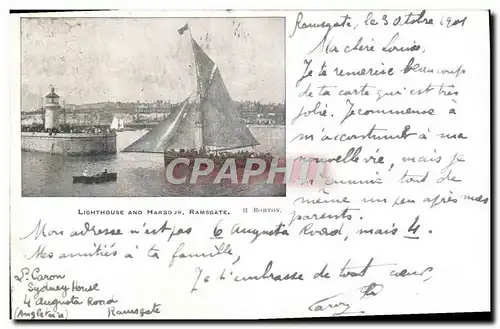 Ramsgate, le 3 Octobre 1901
Ma chère Louise,
Je te remercie beaucoup
de ta carte qui est très
jolie. Je commense à
m'accoutumer à ma
nouvelle vie, mais je
tout de
même un peu après mes
parents.
CARTHAPOST
.COM
LIGHTHOUSE AND HARBOJR, RAMSGATE. H BORTON.
Mon adresse n'est pas 6 Augusta Road, mais 4.
Mes amitiés à ta famille,
Je t'embrasse de tout cœur,
L. Caron
Sydney House
4 augusta Road
(Angleterre) Ramsgate